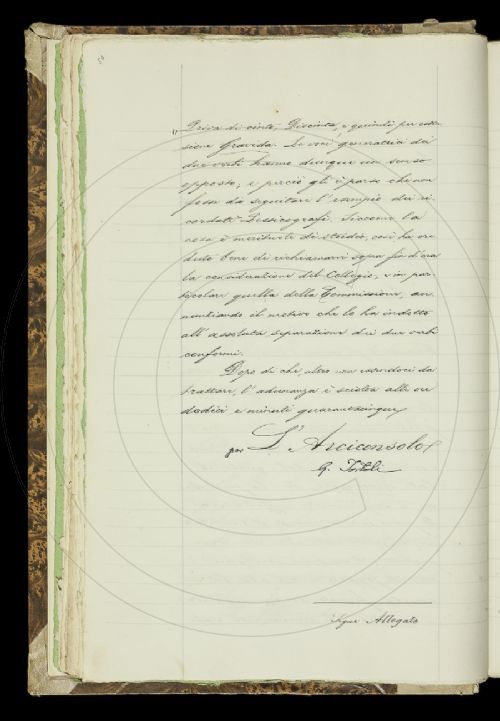 „Priva di cinto, Discinta, e quindi per esten
sione Gravida. Le voci generiche dei
due verbi hanno dunque un senso
opposto, e perciò gli è parso che non
fosse da seguitare l'esempio dei ri
cordati Lessicografi. Siccome la
cosa è meritevole di studio, così ha cre
duto bene di richiamarvi sopra fin d'ora
la considerazione del Collegio, e in par
ticolare quella della Commissione, an
nunziando il motivo che lo ha indotto
all'assoluta separazione dei due verbi
conformi.
Dopo di che, altro non essendoci da
trattare, l'adunanza è sciolta alle ore
dodici e minuti quarantacinque
per L'Arciconsolo
G. Tortoli
Segue Allegato